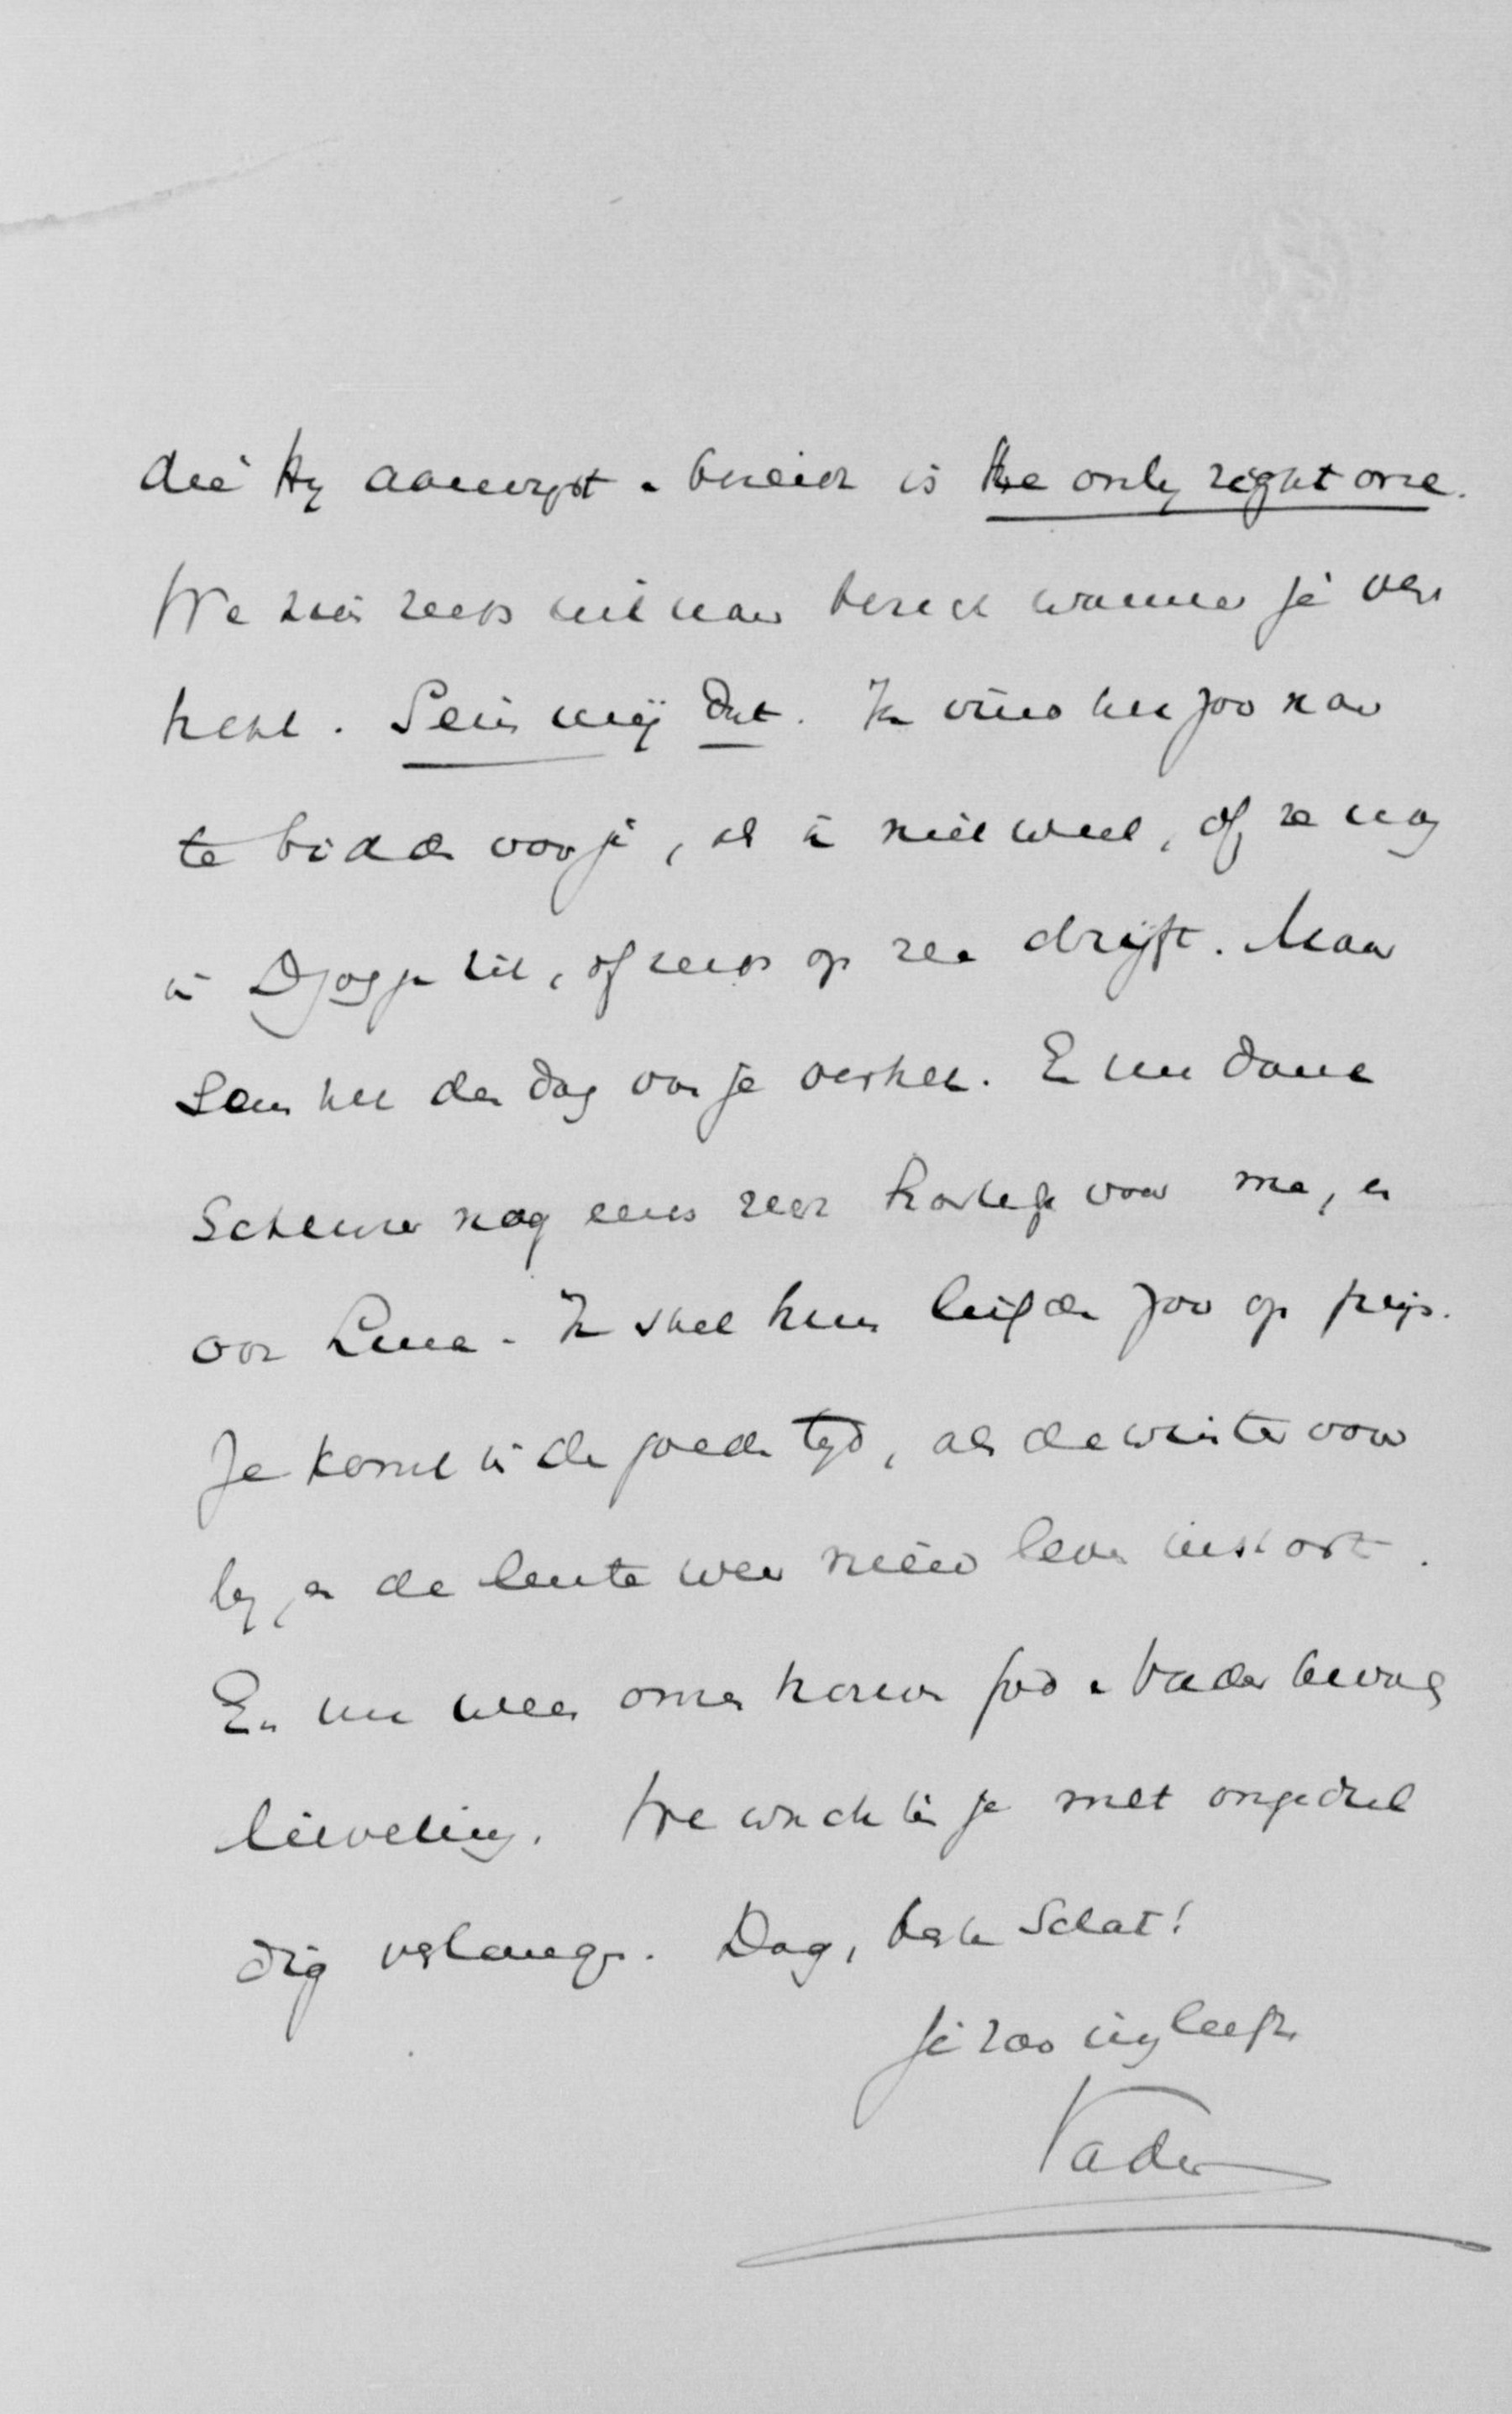 die Hij aanwijst en bereidt is the only right one.
We zien reeds uit naar bericht wanneer je ver
trekt. Sein mij dat. Ik vind het zoo naar
te bidden voor je, als ik niet weet, of ze nog
in Djogja zit, of reeds op zee drijft. Maar
Sein me den dag van je vertrek. En nu dank
Scheurer nog eens zeer hartelijk voor me, en
ook Lena. Ik stel hun liefde zoo op prijs.
Je komt in de goede tijd, als de winter voor
bij, en de lente weer nieuw leven uitstort.
En nu weer onzen trouwen God en Vader bevolen
lieveling. We wachten je met ongedul
dig verlangen. Dag, beste Schat!
Je zoo innig liefh.
Vader